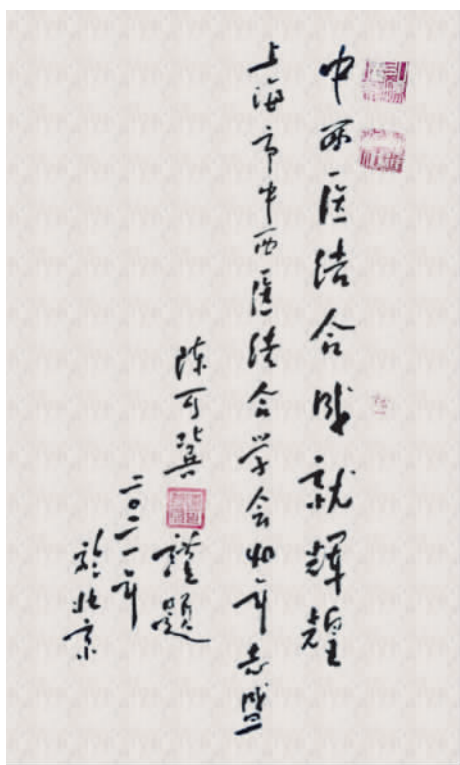 中西医结合成就辉煌
上海市中西医结合学会40年志盛
陈可冀 谨题
二〇二一年
于北京